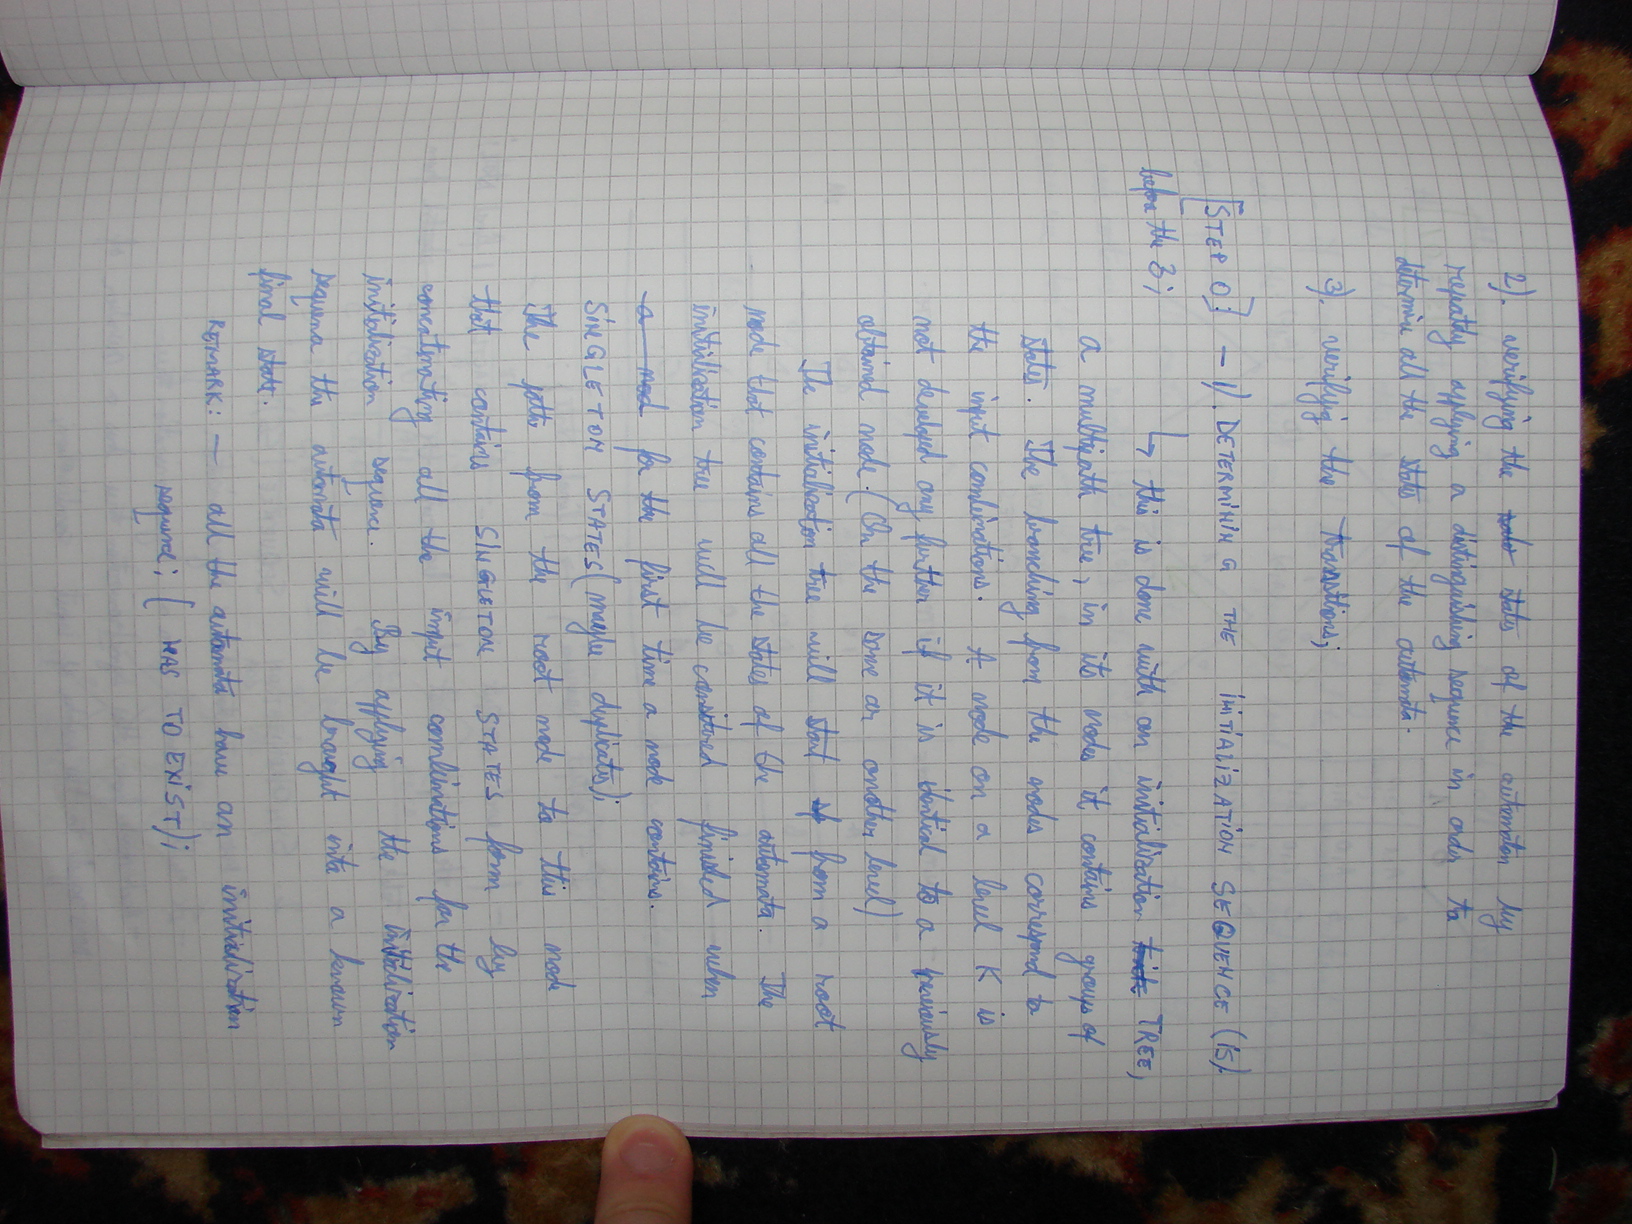 2). verifying the states of the automaton by
repeatly applying a distinguishing sequence in order to
determine all the states of the automata.
3). verifying the transitions;
[STEP 0] - 1). DETERMINING THE INITIALIZATION SEQUENCE (IS)
before the 3;
↳ this is done with an initialization TREE,
a multipath tree, in its nodes it contains groups of
states. The branching from the nodes correspond to
the input combinations. A node on a level K is
not developed any further if it is identical to a previously
obtained node. (On the same or another level)
The initialization tree will start from a root
node that contains all the states of the automata. The
initialization tree will be considered finished when
for the first time a node contains.
SINGLETON STATES (maybe duplicates);
The path from the root node to this node
that contains SINGLETON STATES form by
concatenating all the input combinations for the
initialization sequence. By applying the initialization
sequence the automata will be brought into a known
final state.
REMARK: - all the automata have an initialization
sequence; (HAS TO EXIST);